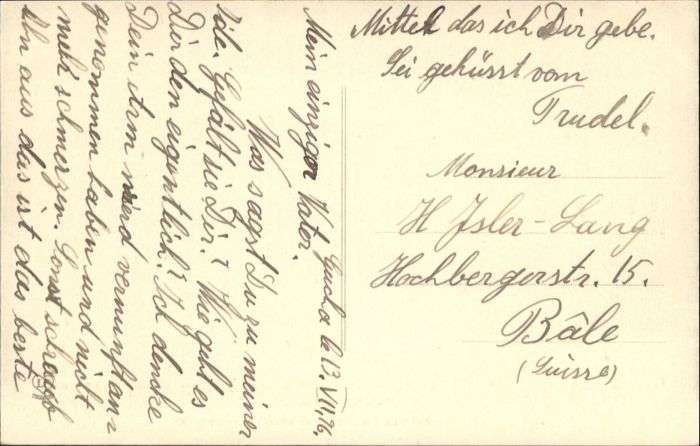 Mein einziger Vater.
Sucha le 13. VII. 26.
Was sagst Du zu meiner
Idee. Gefält sie Dir? Wie geht es
Dir den eigentlich? Ich dencke
Dein Arm wird vernunft an=
genommen haben und nicht
mehr schmerzen. Sonst schraub
Ihn aus das ist das beste
Mittel das ich Dir gebe.
Sei geküsst vom
Trudel.
Monsieur
H Isler-Lang
Hochbergerstr. 15.
Bâle
(Suisse)